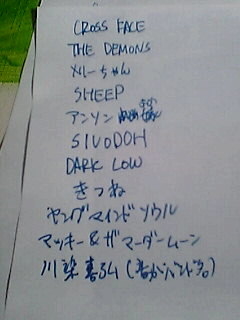 CROSS FACE
THE DEMONS
メリーちゃん
SHEEP
アンソン
SIVODOH
DARK LOW
きつね
ヤングマインドソウル
マッキー&ザマーダームーン
川染喜弘(音がバンド名)